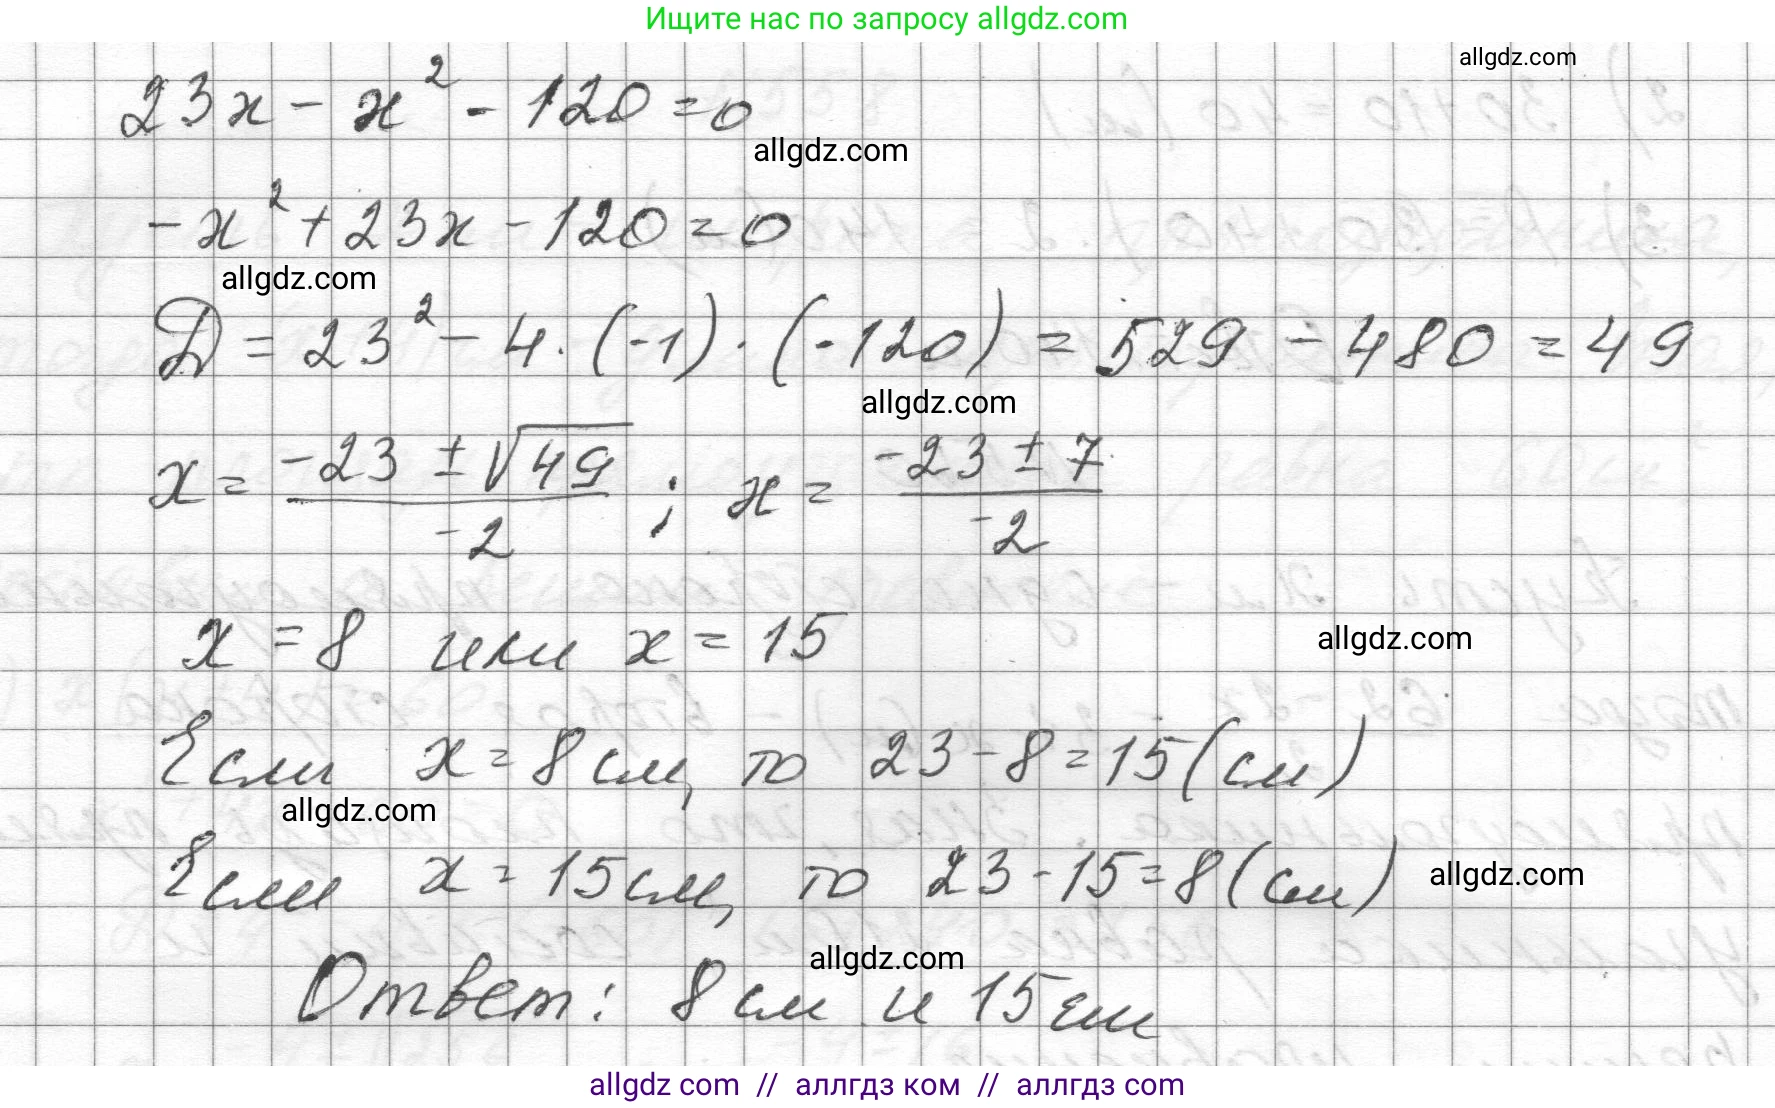 Ищите нас по запросу allgdz.com
allgdz.com
23x - x² - 120 = 0
allgdz.com
-x² + 23x - 120 = 0
allgdz.com
D = 23² - 4 · (-1) · (-120) = 529 - 480 = 49
allgdz.com
x = (-23 ± √49)/(-2) ; x = (-23 ± 7)/(-2)
x = 8 или x = 15
allgdz.com
Если x = 8 см, то 23 - 8 = 15 (см)
allgdz.com
Если x = 15 см, то 23 - 15 = 8 (см)
allgdz.com
allgdz.com
Ответ: 8 см и 15 см
allgdz com // аллгдз ком // аллгдз com